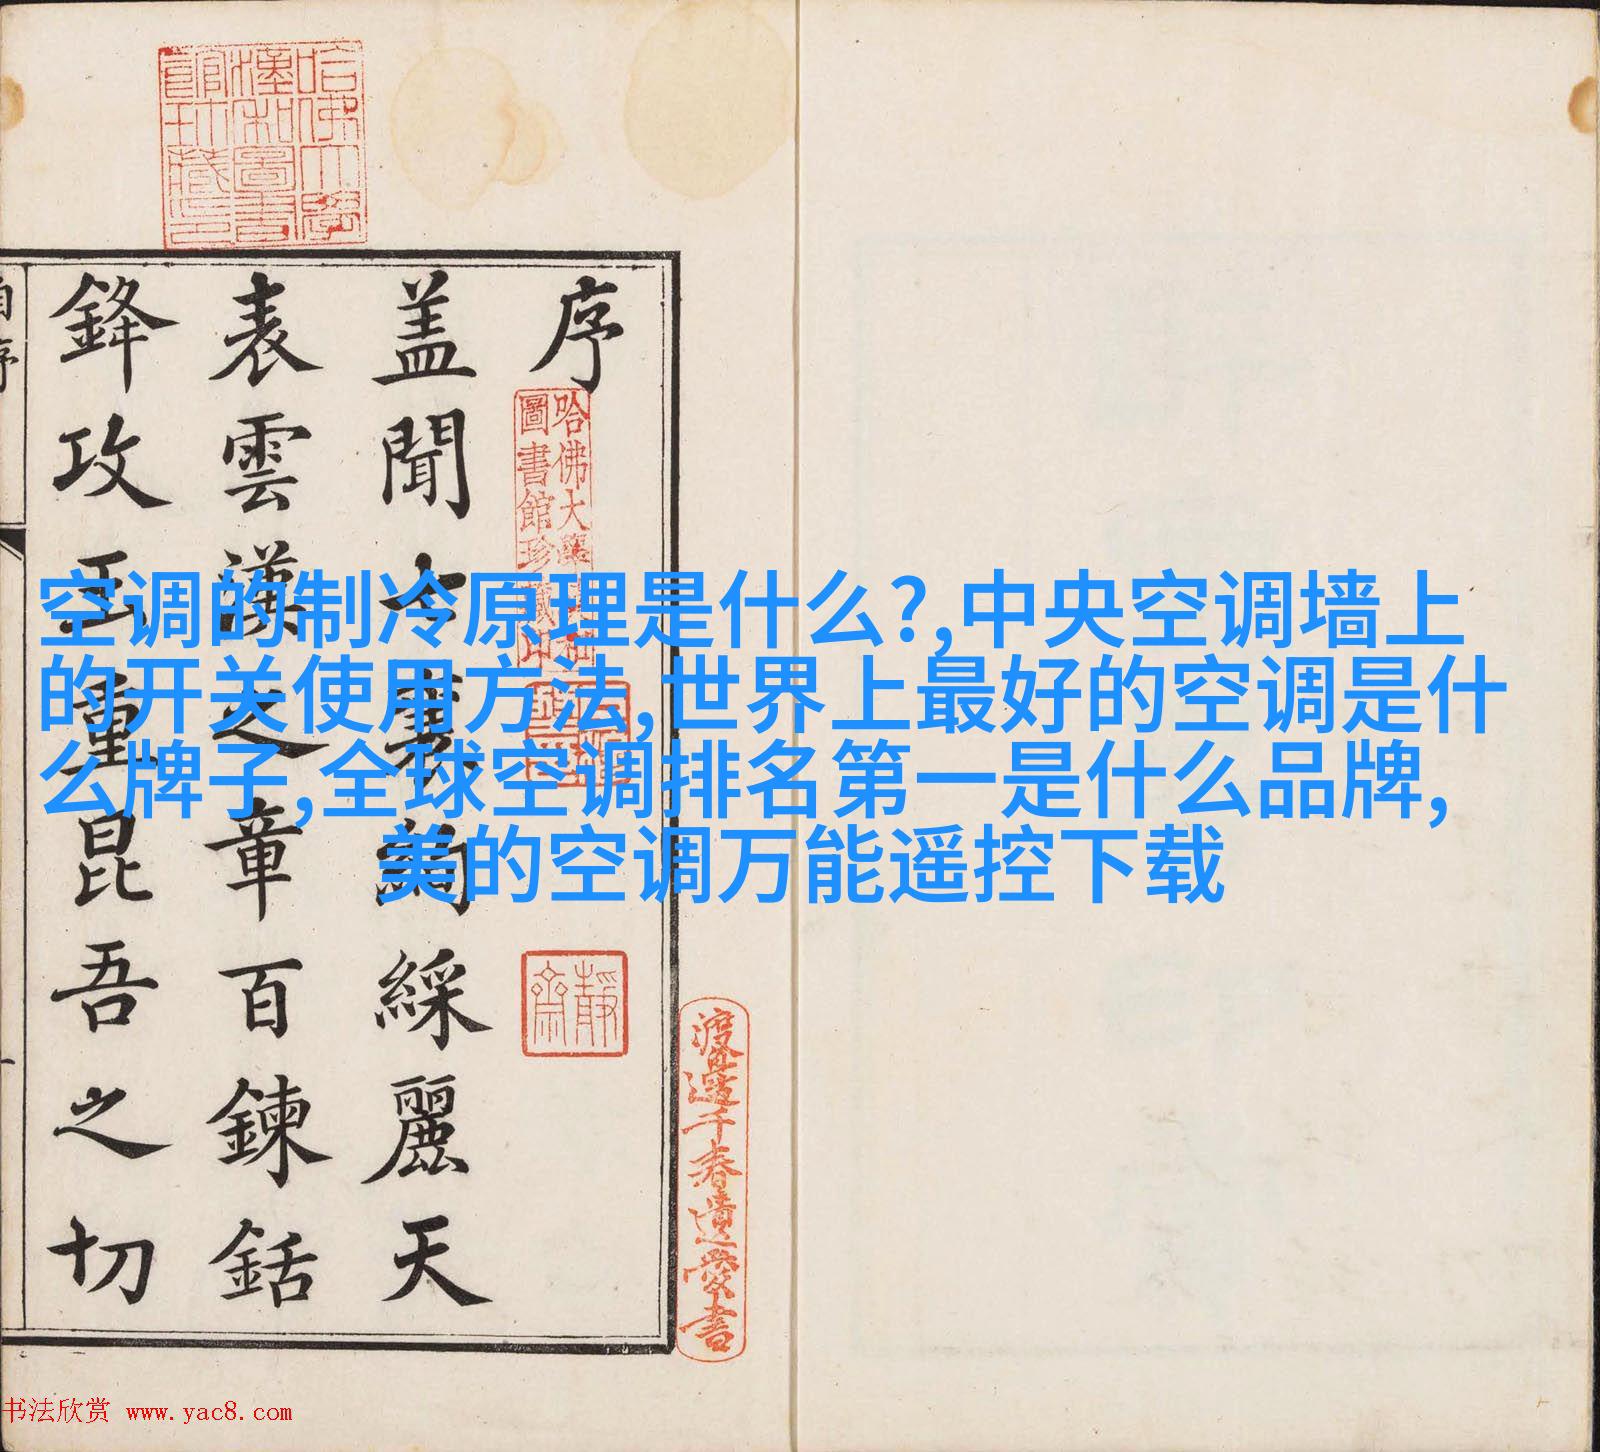 空调的制冷原理是什么?,中央空调墙上
的开关使用方法,世界上最好的空调是什
么牌子,全球空调排名第一是什么品牌,
美的空调万能遥控下载
哈佛大學
漢和圖書
館珍藏印
序
哈佛大學漢和
圖書館珍藏印
靜齋
渡邊千春遺愛書
盖聞七襄綵麗天
表雲漢之章百鍊銛
鋒攻玉重昆吾之切
书法欣赏 www.yac8.com